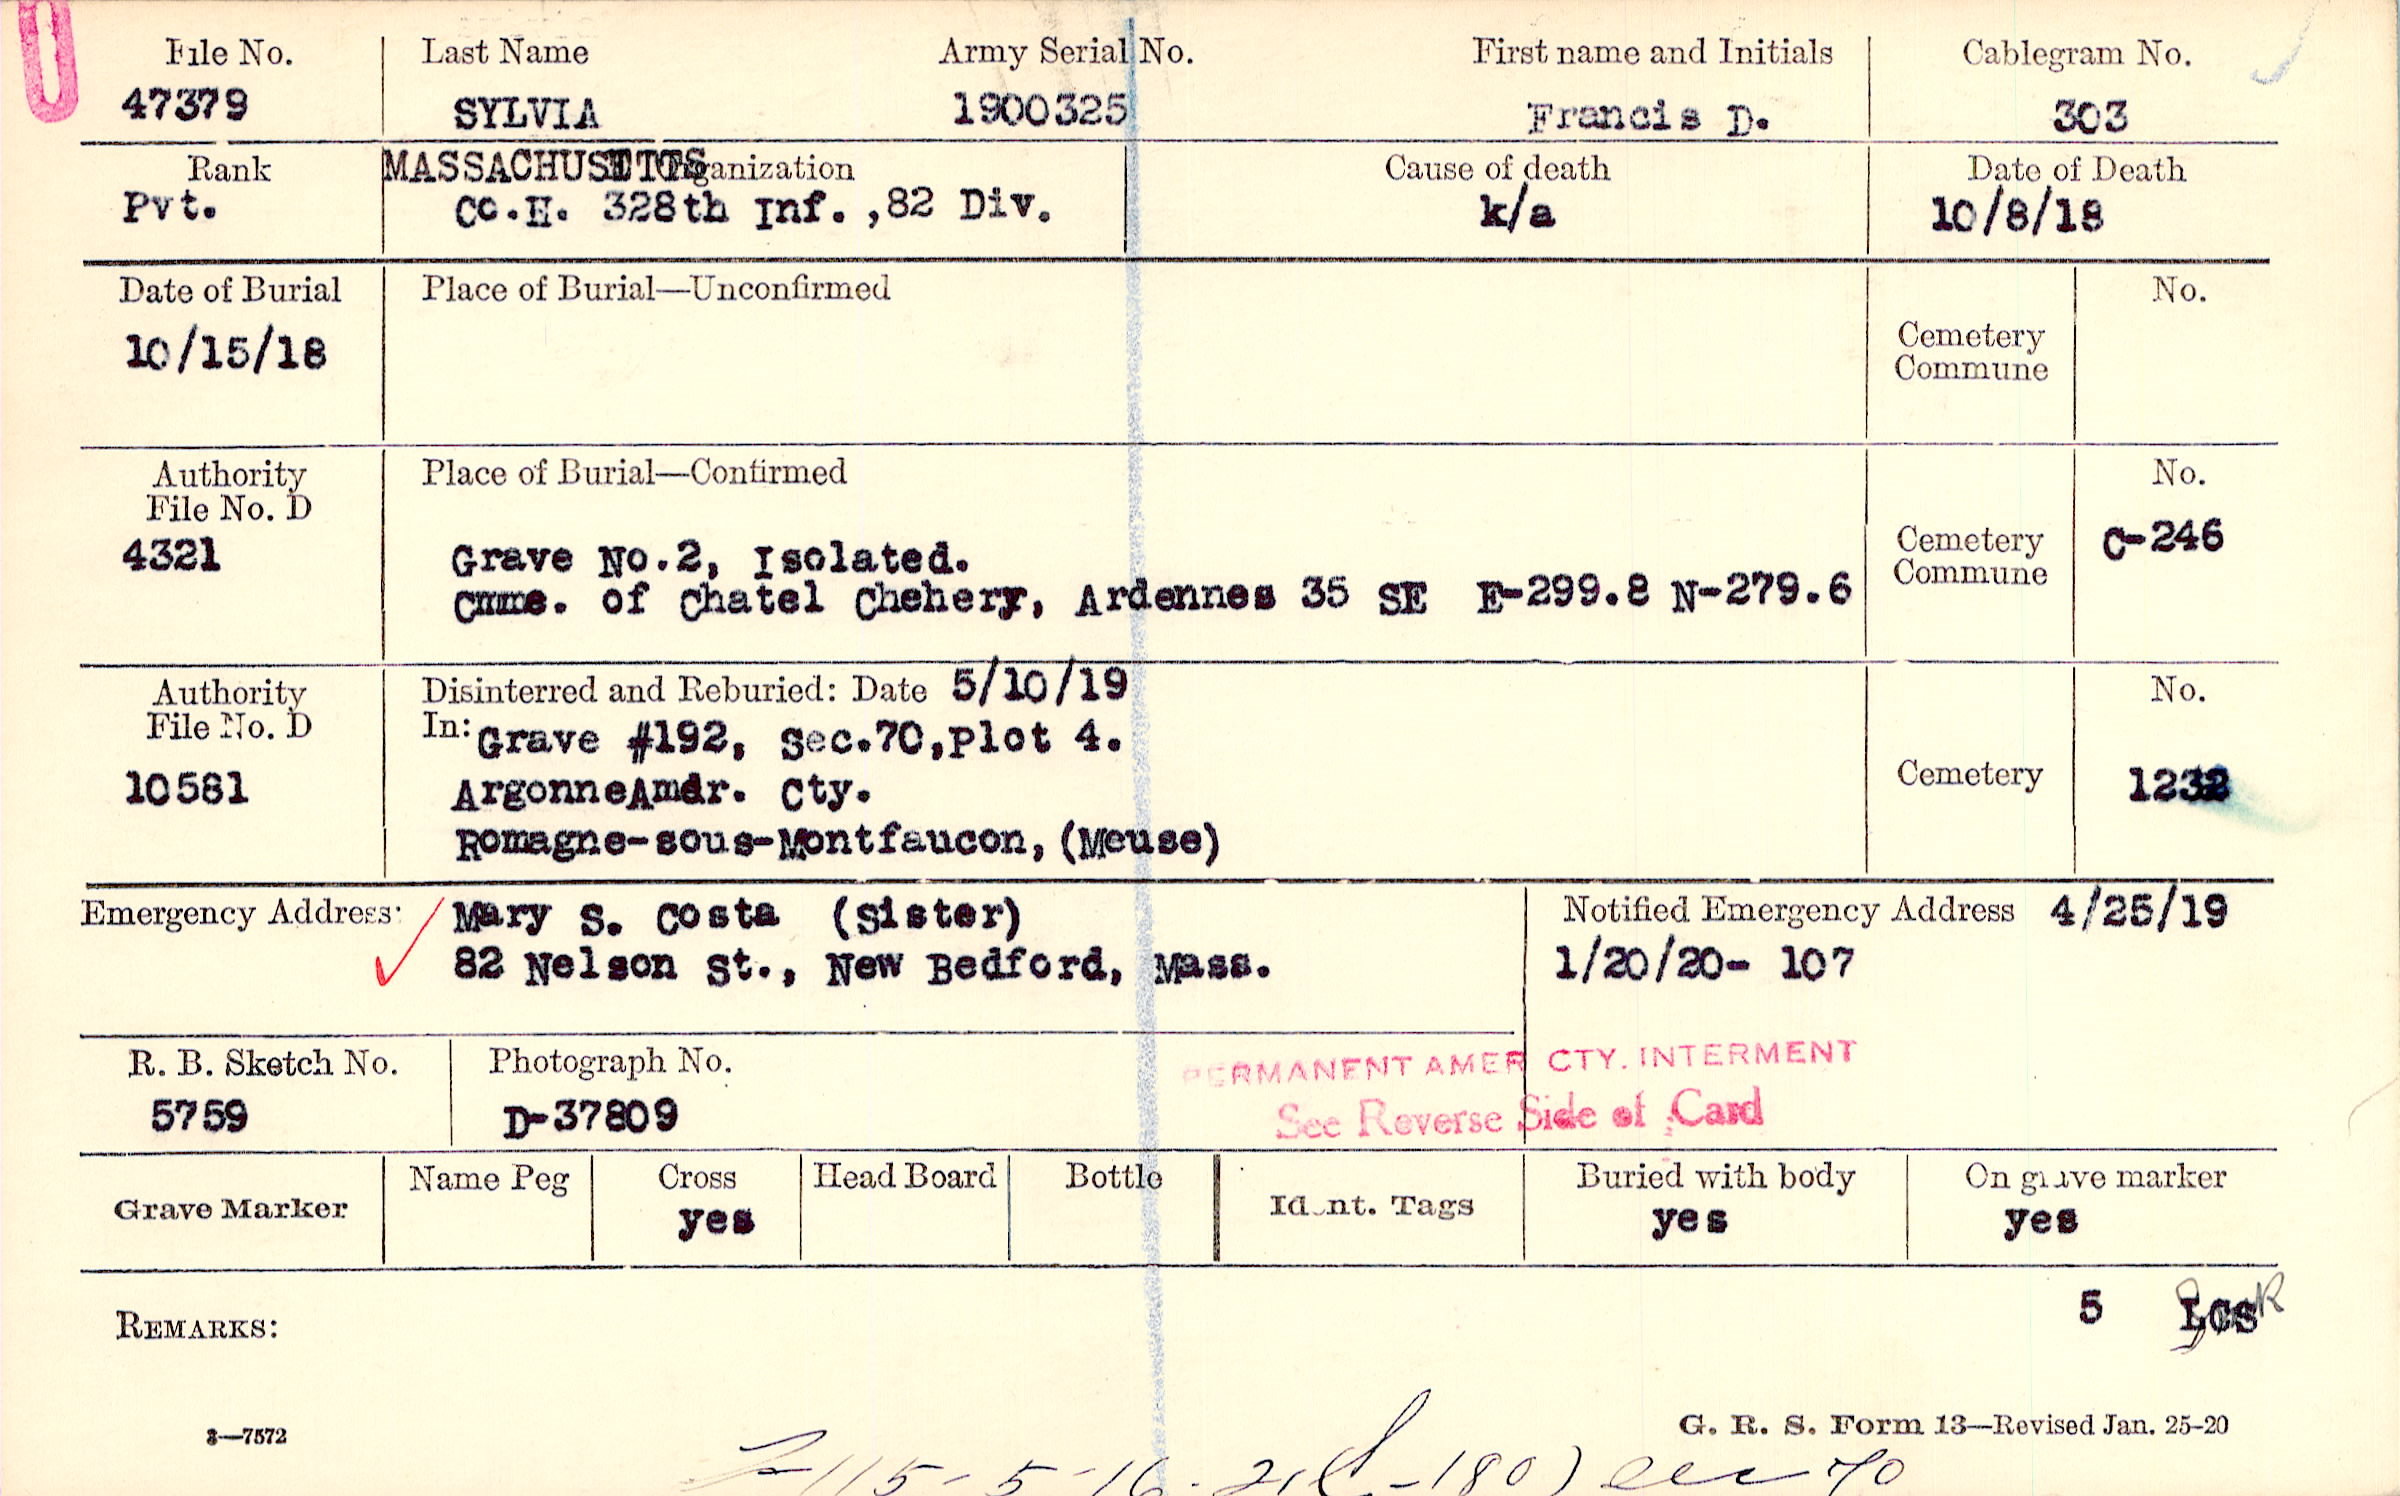 File No. Last Name Army Serial No. First name and Initials Cablegram No.
47379 SYLVIA 1900325 Francis D. 303
Rank MASSACHUSETTS Organization Cause of death Date of Death
Pvt. Co.H. 328th Inf.,82 Div. k/a 10/8/18
Date of Burial Place of Burial—Unconfirmed No.
10/15/18 Cemetery
Commune
Authority Place of Burial—Confirmed No.
File No. D
4321 Grave No.2, Isolated. Cemetery C-246
Cmme. of Chatel Chehery, Ardennes 35 SE E-299.8 N-279.6 Commune
Authority Disinterred and Reburied: Date 5/10/19 No.
File No. D In: Grave #192, Sec.70,Plot 4.
10581 ArgonneAmer. Cty. Cemetery 1232
Romagne-sous-Montfaucon,(Meuse)
Emergency Address: Mary S. Costa (Sister) Notified Emergency Address 4/25/19
82 Nelson St., New Bedford, Mass. 1/20/20- 107
R. B. Sketch No. Photograph No. PERMANENT AMER CTY. INTERMENT
5759 D-37809 See Reverse Side of Card
Grave Marker Name Peg Cross Head Board Bottle Ident. Tags Buried with body On grave marker
yes yes yes
5 LCS
REMARKS:
3—7572 G. R. S. Form 13—Revised Jan. 25-20